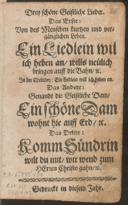 Drey schöne Geistliche Lieder.
Das Erste:
Von des Menschen kurtzen und ver-
gänglichen Leben.
Ein Liedlein wil
ich heben an/ wills neülich
bringen auff die Bahn/ ꝛc.
In der Melodey: Ein Liedlein will ich heben an.
Das Andere:
Genandt die Geistliche Dam/
Ein schöne Dam
wohnt hie auff Erd/ ꝛc.
Das Dritte:
Komm Sündrin
wilt du mit/ wir wend zum
HErren Christo gahn/ ꝛc.
Gedruckt in diesem Jahr.